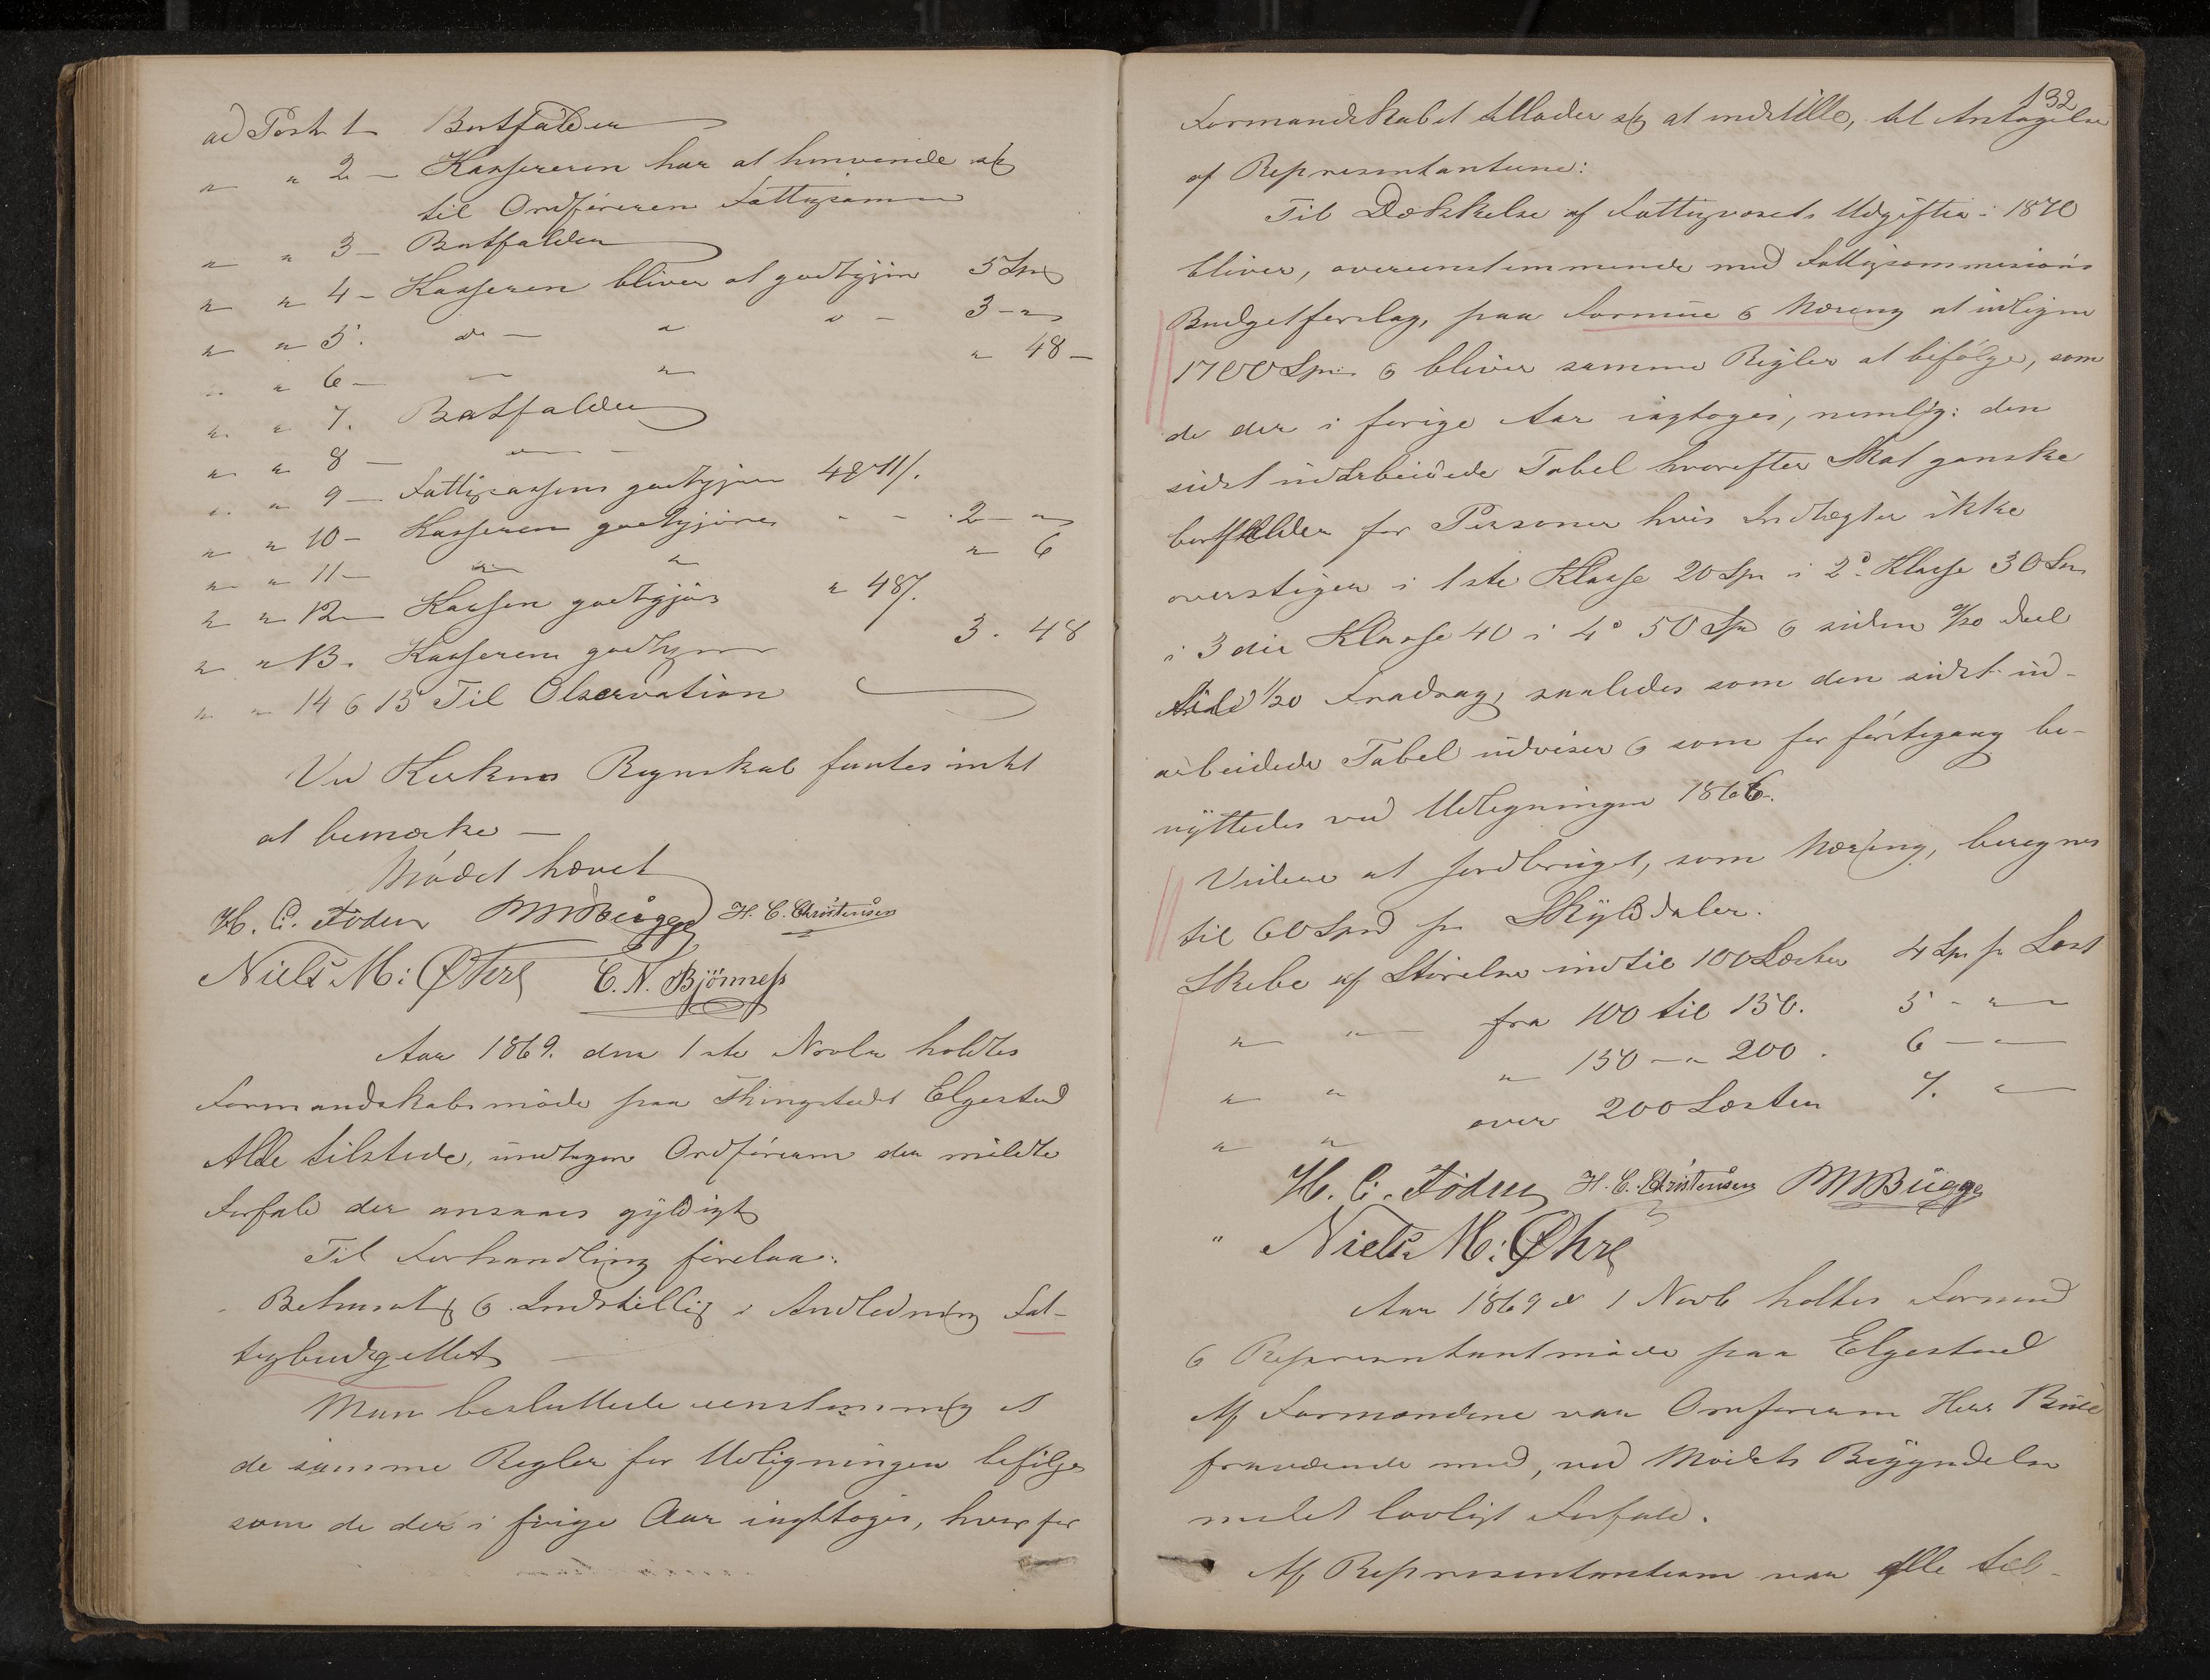 ad Post 1 Bortfalder
" " 2 - Kassereren har at henvende sig
til Ordføreren Fattigcomm
" " 3 - Bortfalder
" " 4 - Kasseren bliver at godtgjøre 5 Spd
" " 5. do - " " - 3 - "
" " 6 - " " 48 -
" " 7. Bortfalder
" " 8 - " -
" " 9 - Fattigcassens godtgjøres 48
" " 10 - Kasseren godtgjøres - - 2 - "
" " 11 - " " " 6
" " 12 - Kassen godtgjøres " 48
" " 13. Kasseren godtgjøres 3. 48
" " 14 & 15 Til Observation
Ved Kirkens Regnskab fantes intet
at bemærke -
Mødet hævet
H. C. Foden MMBugge H. C. Christensen
Niels M: Øhre C. N. Bjönness
Aar 1869. den 1ste Novbr holdtes
Formandskabsmøde paa Thingstedet Elgestad
Alle tilstede, undtagen Ordføreren der meldte
Forfald der ansaaes gyldigt
Til Forhandling forelaa:
Betænkng & Indstillig i Andledning Fat-
tigbudgettet
Man besluttede eenstemmig at
de samme Regler for Udligningen befølges
som de der i forige Aar iagttoges, hvorfor
132
Formandskabet tillader sig at indstille, til Antagelse
af Repræsentanterne:
Til Dækkelse af Fattigvæsets Udgifter i 1870
bliver, overeenstemmende med Fattigcommisions
Budgetforslag, paa Formue & Næring at udligne
1700 Spd & bliver samme Regler at befølge, som
de der i forige Aar iagtoges, nemlig: den
sidst udarbeidede Tabel hvorefter Skat ganske
bortfalder for Personer hvis Indtægter ikke
overstiger i 1ste Klasse 20 Spd i 2d Klasse 30 Spd
i 3die Klasse 40 i 4d 50 Spd & siden /20 deel
1/20 Fradrag, saaledes som den sidst ud-
arbeidede Tabel udviser & som for førstegang be-
nyttedes ved Udligningen 1866.
Videre at Jordbruget, som Næring, beregnes
til 60 Spd pr Skylddaler.
Skibe af Størelse indtil 100 Læster 4 Spd pr Læst
" " fra 100 til 150. 5 - " -
" " " 150 - " 200. 6 - " -
" " over 200 Læsten 7. " -
H. C. Foden H. C. Christensen MMBugge
" Niels M: Øhre
Aar 1869 d 1 Novb holtes Formand
& Repræsentantmøde paa Elgestad
Af Formændene var Ordføreren Herr
fraværende med, ved Mødets Begyndelse
meldt lovligt Forfald.
Af Repræsentanterne var alle til-